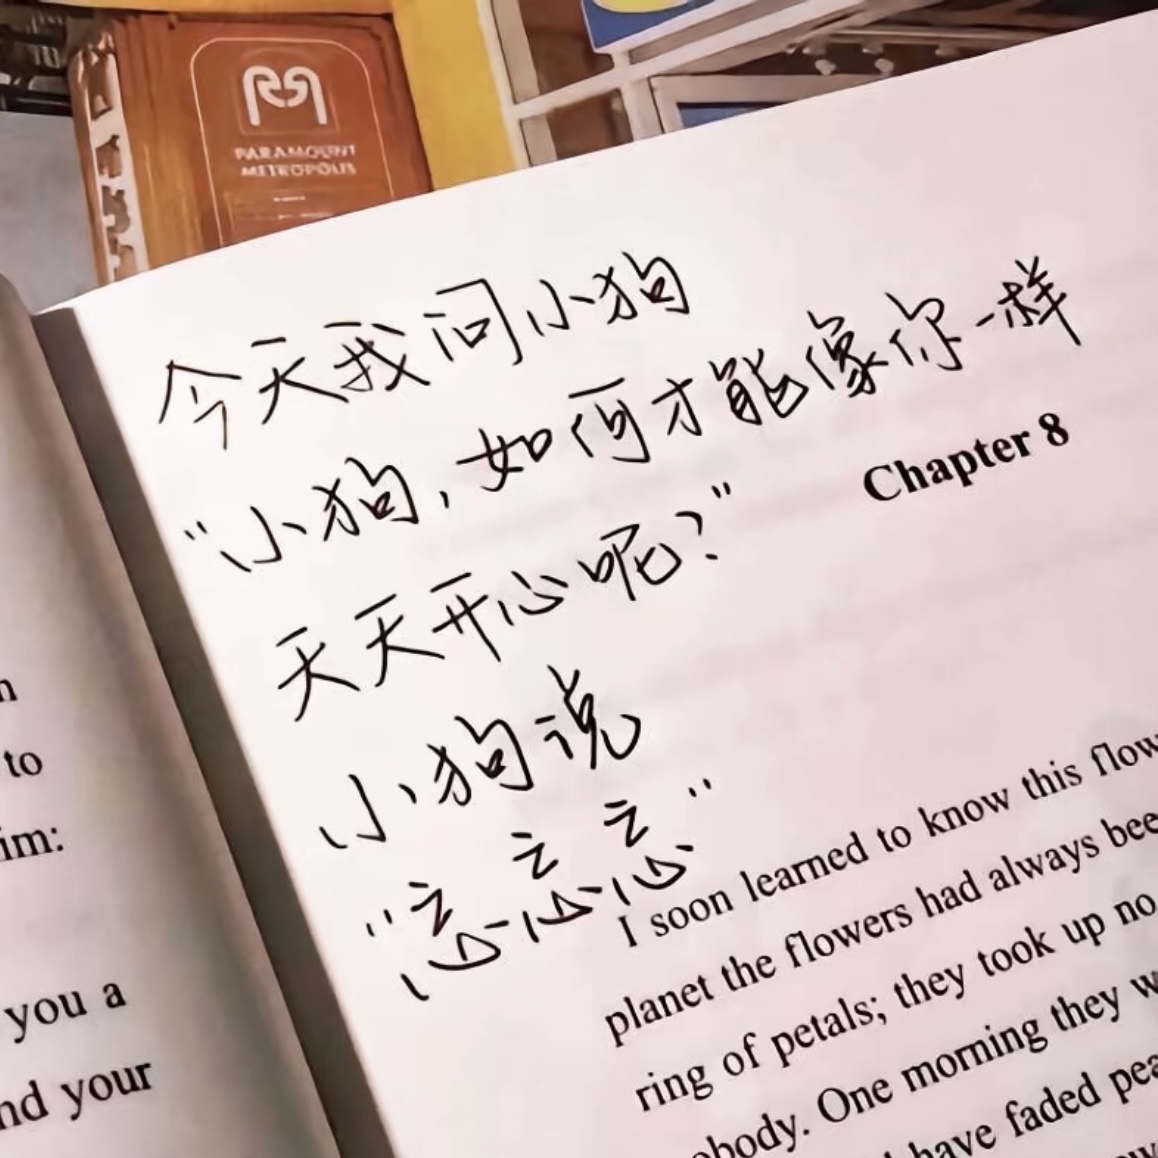 PARAMOUNT
METROPOLIS
今天我问小狗
"小狗,如何才能像你一样
天天开心呢?"
小狗说
Chapter 8
n
to
im:
you a
nd your
I soon learned to know this flow
planet the flowers had always bee
ring of petals; they took up no
obody. One morning they w
have faded pea